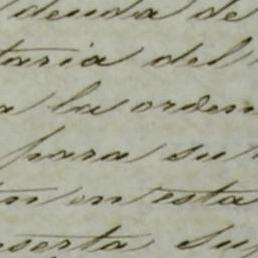 deuda de
taria del
a la orden
para su
en esta
nserta Su